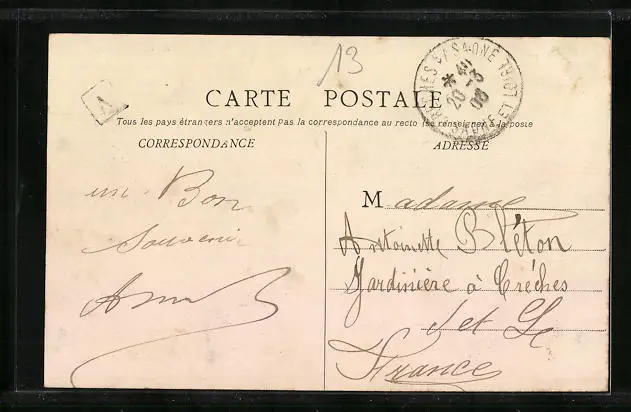 13
A
CARTE POSTALE
Tous les pays étrangers n'acceptent pas la correspondance au recto (se renseigner à la poste
CORRESPONDANCE
ADRESSE
un Bon
Souvenir
Madame
Antoinette Bléton
Jardinière à Crêches
S et L
France
CRECHES S/ SAONE
SAONE ET LOIRE
20 -3
06